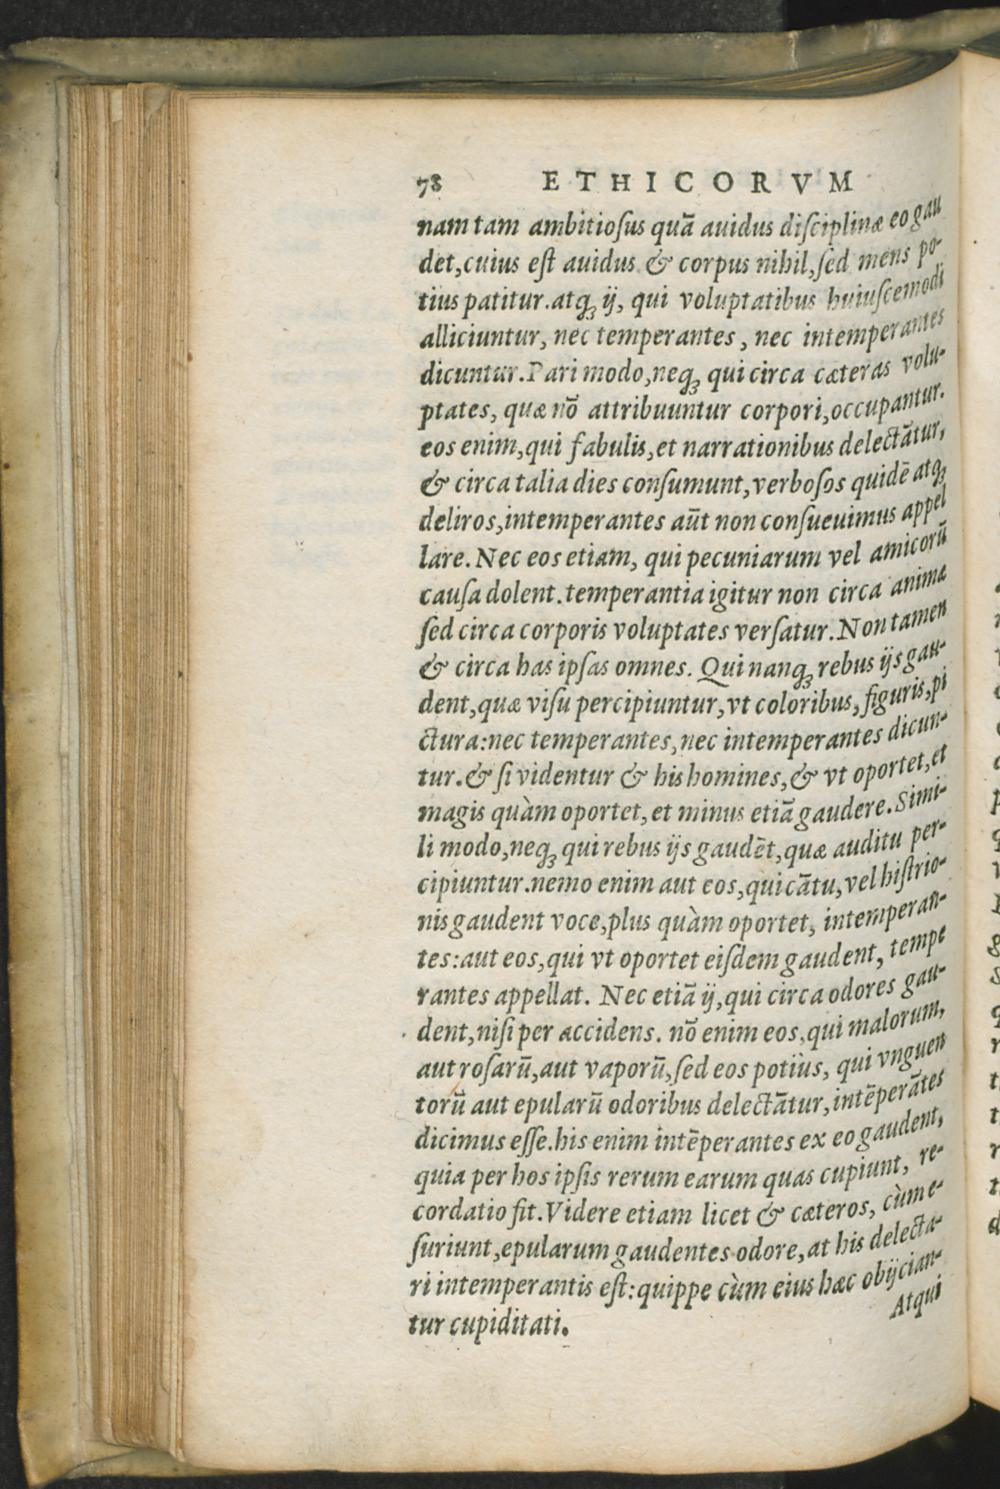 78 ETHICORVM
nam tam ambitioſus quā auidus diſciplinæ eo gau
det,cuius eſt auidus & corpus nihil,ſed mens po-
tius patitur.atqꝫ ij, qui voluptatibus huiuſcemodi
alliciuntur, nec temperantes, nec intemperantes
dicuntur.Pari modo,neqꝫ qui circa cæteras volu-
ptates, quæ nō attribuuntur corpori,occupantur.
eos enim,qui fabulis,et narrationibus delectātur,
& circa talia dies conſumunt,verboſos quidē atqꝫ
deliros,intemperantes aūt non conſueuimus appel
lare.Nec eos etiam, qui pecuniarum vel amicorū
cauſa dolent.temperantia igitur non circa animæ
ſed circa corporis voluptates verſatur.Non tamen
& circa has ipſas omnes. Qui nanqꝫ rebus ijs gau-
dent,quæ viſu percipiuntur,vt coloribus,figuris,pi
ctura:nec temperantes,nec intemperantes dicun-
tur.& ſi videntur & his homines,& vt oportet,et
magis quàm oportet,et minus etiā gaudere.Simi-
li modo,neqꝫ qui rebus ijs gaudēt,quæ auditu per-
cipiuntur.nemo enim aut eos,qui cātu,vel hiſtrio-
nis gaudent voce,plus quàm oportet, intemperan-
tes:aut eos,qui vt oportet eiſdem gaudent, tempe
rantes appellat. Nec etiā ij,qui circa odores gau-
dent,niſi per accidens. nō enim eos,qui malorum,
aut roſarū,aut vaporū,ſed eos potiùs, qui vnguen
torū aut epularū odoribus delectātur,intēperātes
dicimus eſſe.his enim intēperantes ex eo gaudent,
quia per hos ipſis rerum earum quas cupiunt, re-
cordatio fit.Videre etiam licet & cæteros, cùm e-
ſuriunt,epularum gaudentes odore,at his delecta-
ri intemperantis eſt:quippe cùm eius hæc obijcian-
tur cupiditati.
Atqui